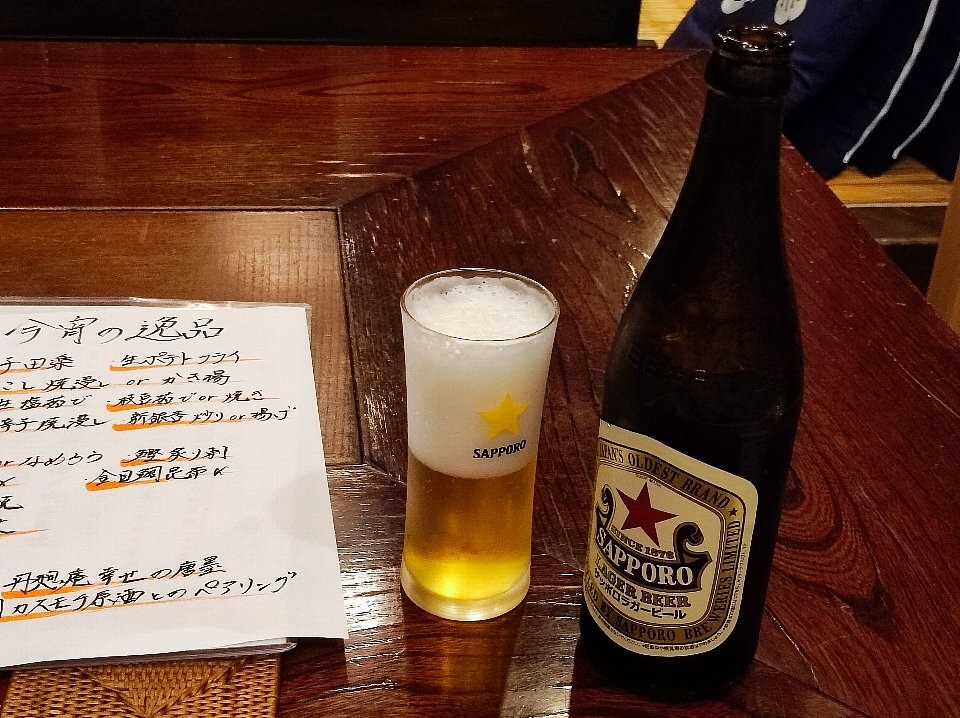 今宵の逸品
子田楽 ・生ポテトフライ
こし焼浸し or かき揚
生塩茹で ・枝豆茹でor焼き
辛子焼浸し 新銀杏炒りor揚げ
orなめろう ・鰹炙り刺
・金目鯛昆布〆
丹廻庵 幸せの唐墨
カスモチ原酒とのペアリング
SAPPORO
JAPAN'S OLDEST BRAND
SINCE 1876
SAPPORO
LAGER BEER
サッポロラガービール
BY SAPPORO BREWERIES LIMITED